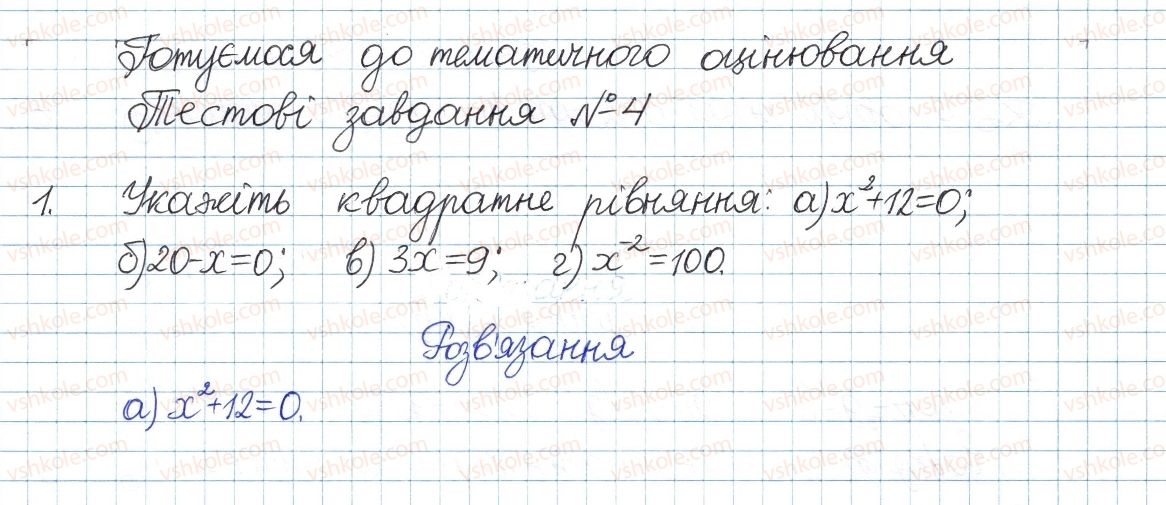 Готуємося до тематичного оцінювання
Тестові завдання №4
1. Укажіть квадратне рівняння: а) x²+12=0;
б) 20-x=0; в) 3x=9; г) x⁻²=100.
Розв'язання
а) x²+12=0.